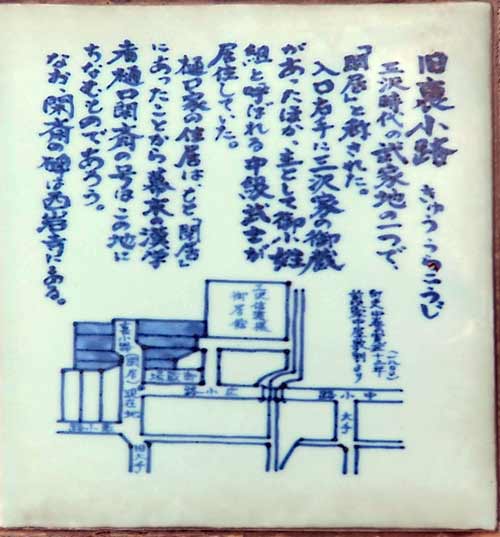 旧裏小路 きゅううらのこうじ
三沢時代の武家地の一つで、
「閑居」と称された。
入口右手に三沢家の御蔵
があったほか、主として御小姓
組と呼ばれる中級武士が
居住していた。
樋口家の住居は、もと「閑居」
にあったことから幕末漢学
者樋口閑斎の号はこの地に
ちなむものであろう。
なお、閑斎の碑は西岩寺にある。
御居館
裏小路(閑居)
現在地
御蔵場
広小路
中小路
大手
旧大手